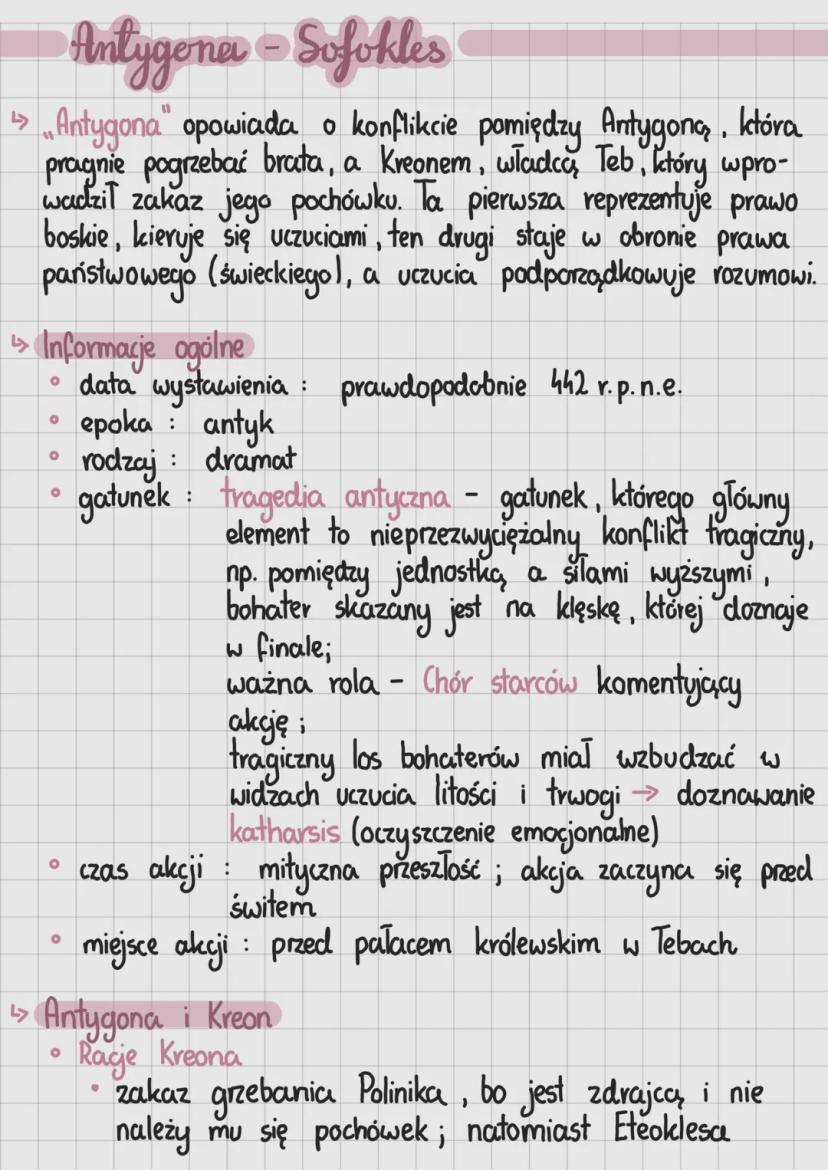 Antygona - Sofokles
↳ „Antygona" opowiada o konflikcie pomiędzy Antygoną, która
pragnie pogrzebać brata, a Kreonem, władcą Teb, który wpro-
wadził zakaz jego pochówku. Ta pierwsza reprezentuje prawo
boskie, kieruje się uczuciami, ten drugi staje w obronie prawa
państwowego (świeckiego), a uczucia podporządkowuje rozumowi.
↳ Informacje ogólne
• data wystawienia : prawdopodobnie 442 r. p. n. e.
• epoka : antyk
• rodzaj : dramat
• gatunek : tragedia antyczna - gatunek, którego główny
element to nieprzezwyciężalny konflikt tragiczny,
np. pomiędzy jednostką a siłami wyższymi,
bohater skazany jest na klęskę, której doznaje
w finale;
ważna rola - Chór starców komentujący
akcję ;
tragiczny los bohaterów miał wzbudzać w
widzach uczucia litości i trwogi → doznawanie
katharsis (oczyszczenie emocjonalne)
• czas akcji : mityczna przeszłość ; akcja zaczyna się przed
świtem
• miejsce akcji : przed pałacem królewskim w Tebach
↳ Antygona i Kreon
• Racje Kreona
• zakaz grzebania Polinika, bo jest zdrajcą i nie
należy mu się pochówek ; natomiast Eteoklesa